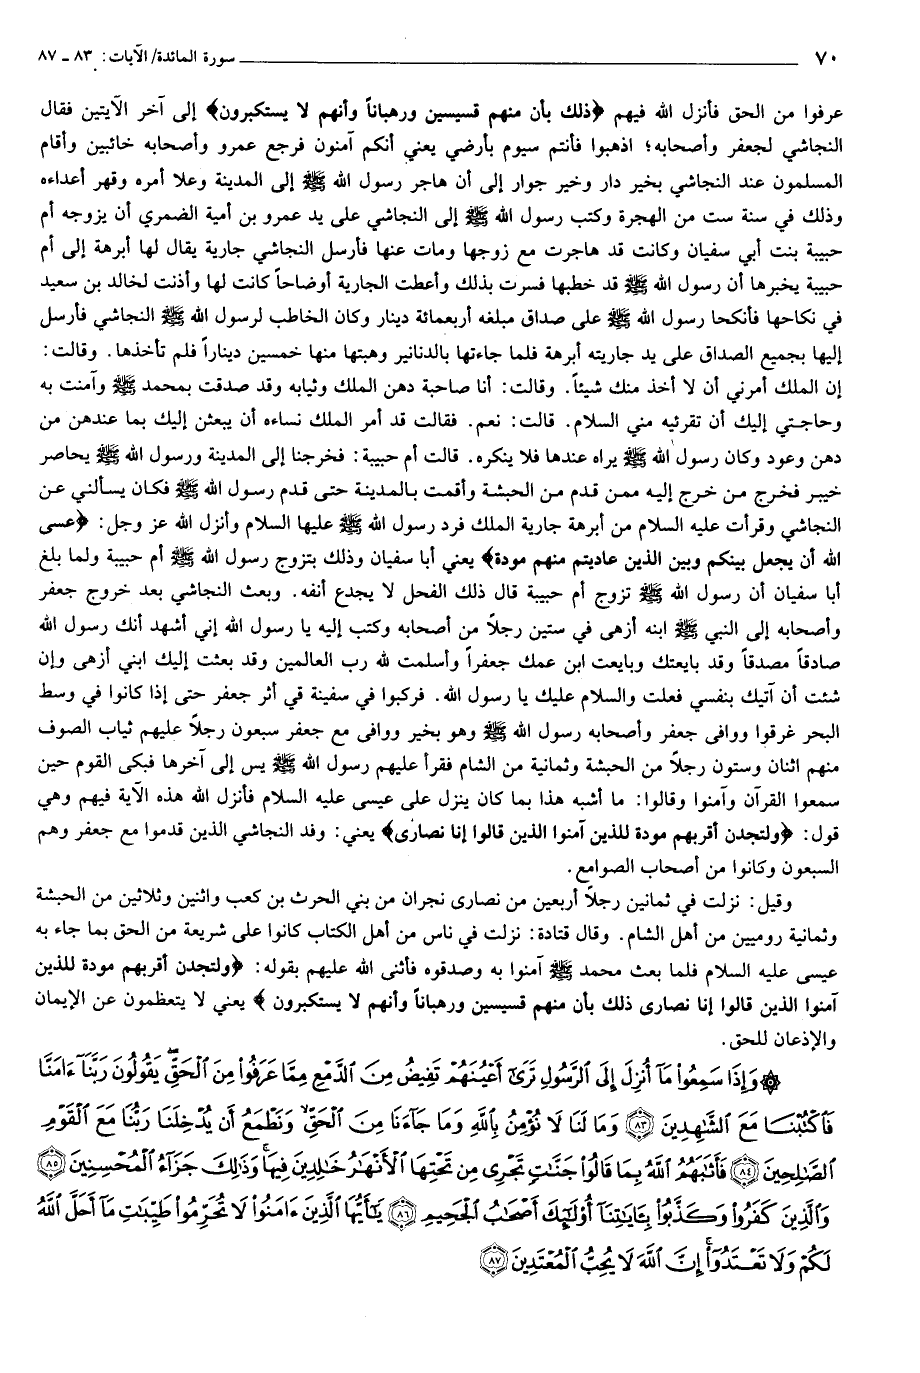 ٧٠ سورة المائدة/ الآيات: ٨٣ ـ ٨٧
عرفوا من الحق فأنزل الله فيهم ﴿ذلك بأن منهم قسيسين ورهباناً وأنهم لا يستكبرون﴾ إلى آخر الآيتين فقال
النجاشي لجعفر وأصحابه؛ اذهبوا فأنتم سيوم بأرضي يعني أنكم آمنون فرجع عمرو وأصحابه خائبين وأقام
المسلمون عند النجاشي بخير دار وخير جوار إلى أن هاجر رسول الله ﷺ إلى المدينة وعلا أمره وقهر أعداءه
وذلك في سنة ست من الهجرة وكتب رسول الله ﷺ إلى النجاشي على يد عمرو بن أمية الضمري أن يزوجه أم
حبيبة بنت أبي سفيان وكانت قد هاجرت مع زوجها ومات عنها فأرسل النجاشي جارية يقال لها أبرهة إلى أم
حبيبة يخبرها أن رسول الله ﷺ قد خطبها فسرت بذلك وأعطت الجارية أوضاحاً كانت لها وأذنت لخالد بن سعيد
في نكاحها فأنكحا رسول الله ﷺ على صداق مبلغه أربعمائة دينار وكان الخاطب لرسول الله ﷺ النجاشي فأرسل
إليها بجميع الصداق على يد جاريته أبرهة فلما جاءتها بالدنانير وهبتها منها خمسين ديناراً فلم تأخذها. وقالت:
إن الملك أمرني أن لا أخذ منك شيئاً. وقالت: أنا صاحبة دهن الملك وثيابه وقد صدقت بمحمد ﷺ وآمنت به
وحاجتي إليك أن تقرئيه مني السلام. قالت: نعم. فقالت قد أمر الملك نساءه أن يبعثن إليك بما عندهن من
دهن وعود وكان رسول الله ﷺ يراه عندها فلا ينكره. قالت أم حبيبة: فخرجنا إلى المدينة ورسول الله ﷺ يحاصر
خيبر فخرج من خرج إليه ممن قدم من الحبشة وأقمت بالمدينة حتى قدم رسول الله ﷺ فكان يسألني عن
النجاشي وقرأت عليه السلام من أبرهة جارية الملك فرد رسول الله ﷺ عليها السلام وأنزل الله عز وجل: ﴿عسى
الله أن يجعل بينكم وبين الذين عاديتم منهم مودة﴾ يعني أبا سفيان وذلك بتزوج رسول الله ﷺ أم حبيبة ولما بلغ
أبا سفيان أن رسول الله ﷺ تزوج أم حبيبة قال ذلك الفحل لا يجدع أنفه. وبعث النجاشي بعد خروج جعفر
وأصحابه إلى النبي ﷺ ابنه أزهى في ستين رجلاً من أصحابه وكتب إليه يا رسول الله إني أشهد أنك رسول الله
صادقاً مصدقاً وقد بايعتك وبايعت ابن عمك جعفراً وأسلمت لله رب العالمين وقد بعثت إليك ابني أزهى وإن
شئت أن آتيك بنفسي فعلت والسلام عليك يا رسول الله. فركبوا في سفينة قي أثر جعفر حتى إذا كانوا في وسط
البحر غرقوا ووافى جعفر وأصحابه رسول الله ﷺ وهو بخير ووافى مع جعفر سبعون رجلاً عليهم ثياب الصوف
منهم اثنان وستون رجلاً من الحبشة وثمانية من الشام فقرأ عليهم رسول الله ﷺ يس إلى آخرها فبكى القوم حين
سمعوا القرآن وآمنوا وقالوا: ما أشبه هذا بما كان ينزل على عيسى عليه السلام فأنزل الله هذه الآية فيهم وهي
قول: ﴿ولتجدن أقربهم مودة للذين آمنوا الذين قالوا إنا نصارى﴾ يعني: وفد النجاشي الذين قدموا مع جعفر وهم
السبعون وكانوا من أصحاب الصوامع.
وقيل: نزلت في ثمانين رجلاً أربعين من نصارى نجران من بني الحرث بن كعب واثنين وثلاثين من الحبشة
وثمانية روميين من أهل الشام. وقال قتادة: نزلت في ناس من أهل الكتاب كانوا على شريعة من الحق بما جاء به
عيسى عليه السلام فلما بعث محمد ﷺ آمنوا به وصدقوه فأثنى الله عليهم بقوله: ﴿ولتجدن أقربهم مودة للذين
آمنوا الذين قالوا إنا نصارى ذلك بأن منهم قسيسين ورهباناً وأنهم لا يستكبرون﴾ يعني لا يتعظمون عن الإيمان
والإذعان للحق.
۞ وَإِذَا سَمِعُوا۟ مَآ أُنزِلَ إِلَى ٱلرَّسُولِ تَرَىٰٓ أَعْيُنَهُمْ تَفِيضُ مِنَ ٱلدَّمْعِ مِمَّا عَرَفُوا۟ مِنَ ٱلْحَقِّ ۖ يَقُولُونَ رَبَّنَآ ءَامَنَّا
فَٱكْتُبْنَا مَعَ ٱلشَّـٰهِدِينَ ﴿٨٣﴾ وَمَا لَنَا لَا نُؤْمِنُ بِٱللَّهِ وَمَا جَآءَنَا مِنَ ٱلْحَقِّ وَنَطْمَعُ أَن يُدْخِلَنَا رَبُّنَا مَعَ ٱلْقَوْمِ
ٱلصَّـٰلِحِينَ ﴿٨٤﴾ فَأَثَـٰبَهُمُ ٱللَّهُ بِمَا قَالُوا۟ جَنَّـٰتٍ تَجْرِى مِن تَحْتِهَا ٱلْأَنْهَـٰرُ خَـٰلِدِينَ فِيهَا ۚ وَذَٰلِكَ جَزَآءُ ٱلْمُحْسِنِينَ ﴿٨٥﴾
وَٱلَّذِينَ كَفَرُوا۟ وَكَذَّبُوا۟ بِـَٔايَـٰتِنَآ أُو۟لَـٰٓئِكَ أَصْحَـٰبُ ٱلْجَحِيمِ ﴿٨٦﴾ يَـٰٓأَيُّهَا ٱلَّذِينَ ءَامَنُوا۟ لَا تُحَرِّمُوا۟ طَيِّبَـٰتِ مَآ أَحَلَّ ٱللَّهُ
لَكُمْ وَلَا تَعْتَدُوٓا۟ ۚ إِنَّ ٱللَّهَ لَا يُحِبُّ ٱلْمُعْتَدِينَ ﴿٨٧﴾